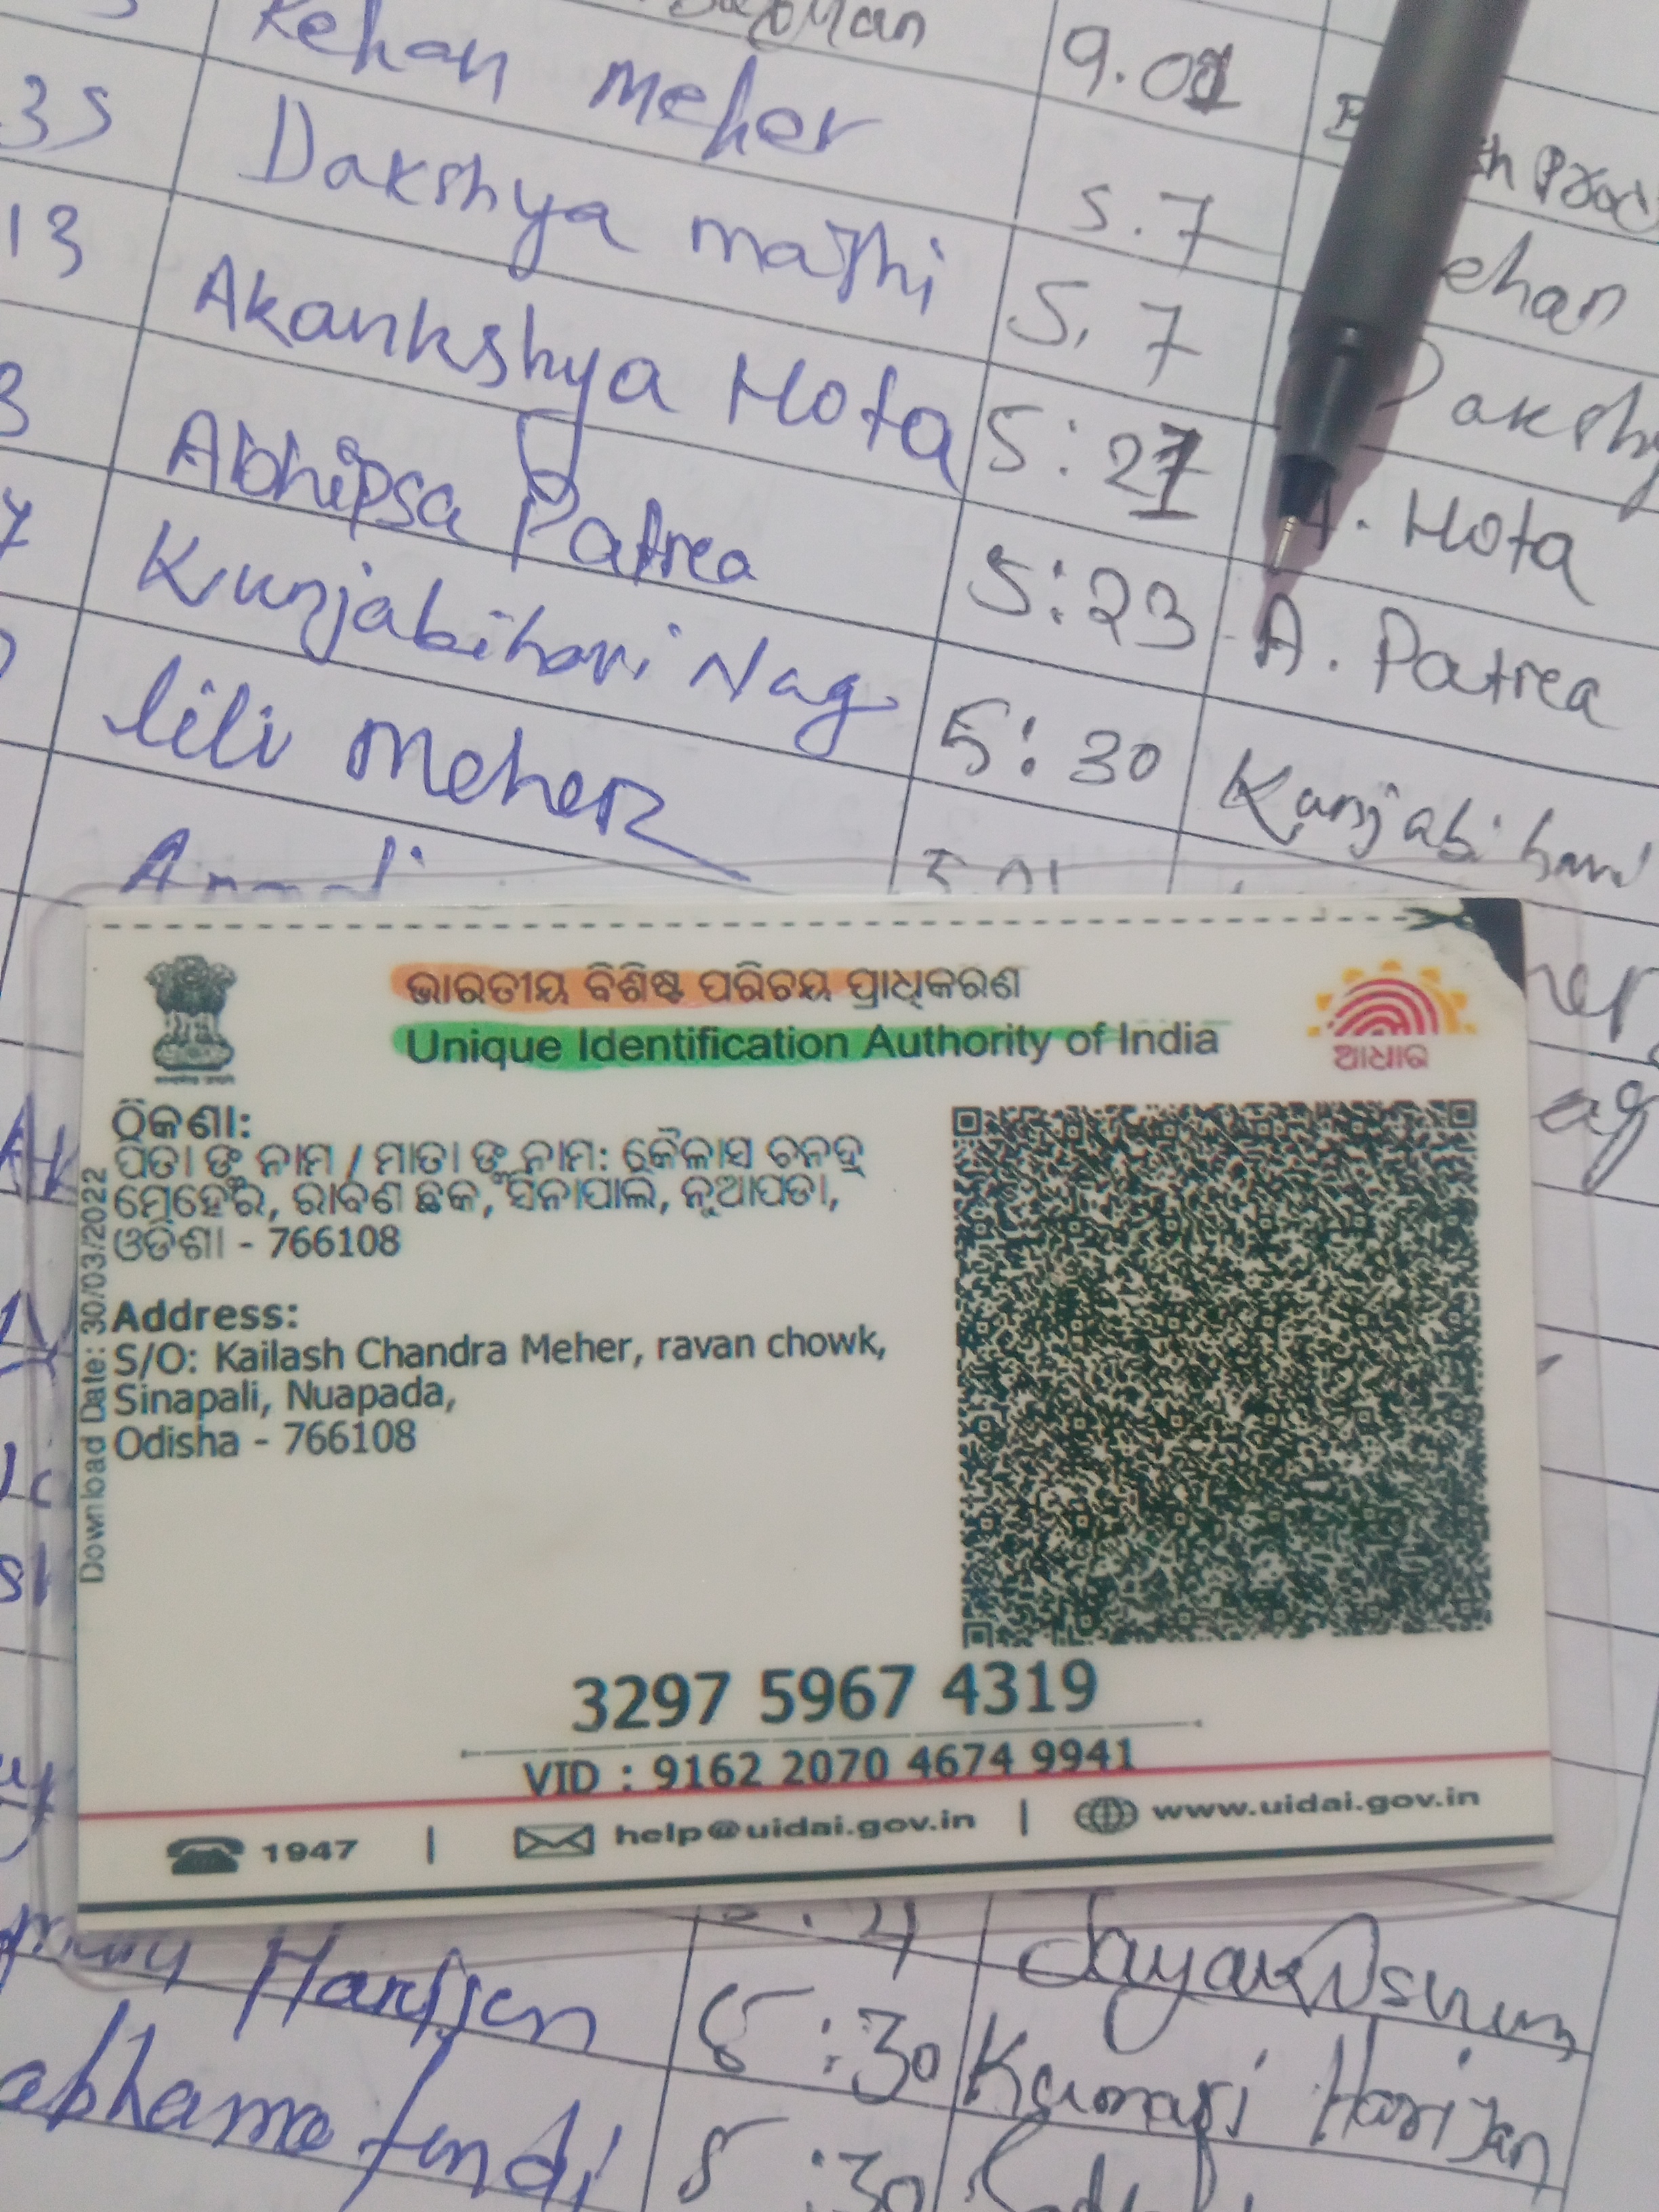 Rehan Meher
9.01
35 Dakshya majhi 5.7 ehan
13 Akankshya Hota 5.7
Abhipsa Patrea 5:21 Hota
Kunjabihari Nag 5:23 A. Patrea
lili Meher 5:30 Kunjabihari
ଭାରତୀୟ ବିଶିଷ୍ଟ ପରିଚୟ ପ୍ରାଧିକରଣ
Unique Identification Authority of India
ଆଧାର
ଠିକଣା:
ପିତା ଙ୍କ ନାମ / ମାତା ଙ୍କ ନାମ: କୈଳାସ ଚନଦ୍ର
ମେହେର, ରାବଣ ଛକ, ସିନାପାଲି, ନୂଆପଡା,
ଓଡିଶା - 766108
Address:
S/O: Kailash Chandra Meher, ravan chowk,
Sinapali, Nuapada,
Odisha - 766108
Download Date: 30/03/2022
3297 5967 4319
VID : 9162 2070 4674 9941
1947 | help@uidai.gov.in | www.uidai.gov.in
Harijan 5:30 Kumari Harijan
5:30